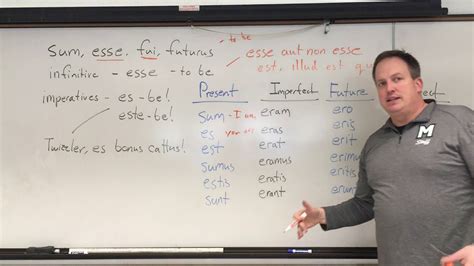 to be
Sum, esse, fui, futurus
esse aut non esse
infinitive - esse - to be
est, illud est
imperatives - es - be!
este - be!
Present Imperfect Future
sum - I am eram ero
es you are eras eris
Tweeler, es bonus cattus! est erat erit
sumus eramus erimu
estis eratis eritis
sunt erant erunt
M
Staff